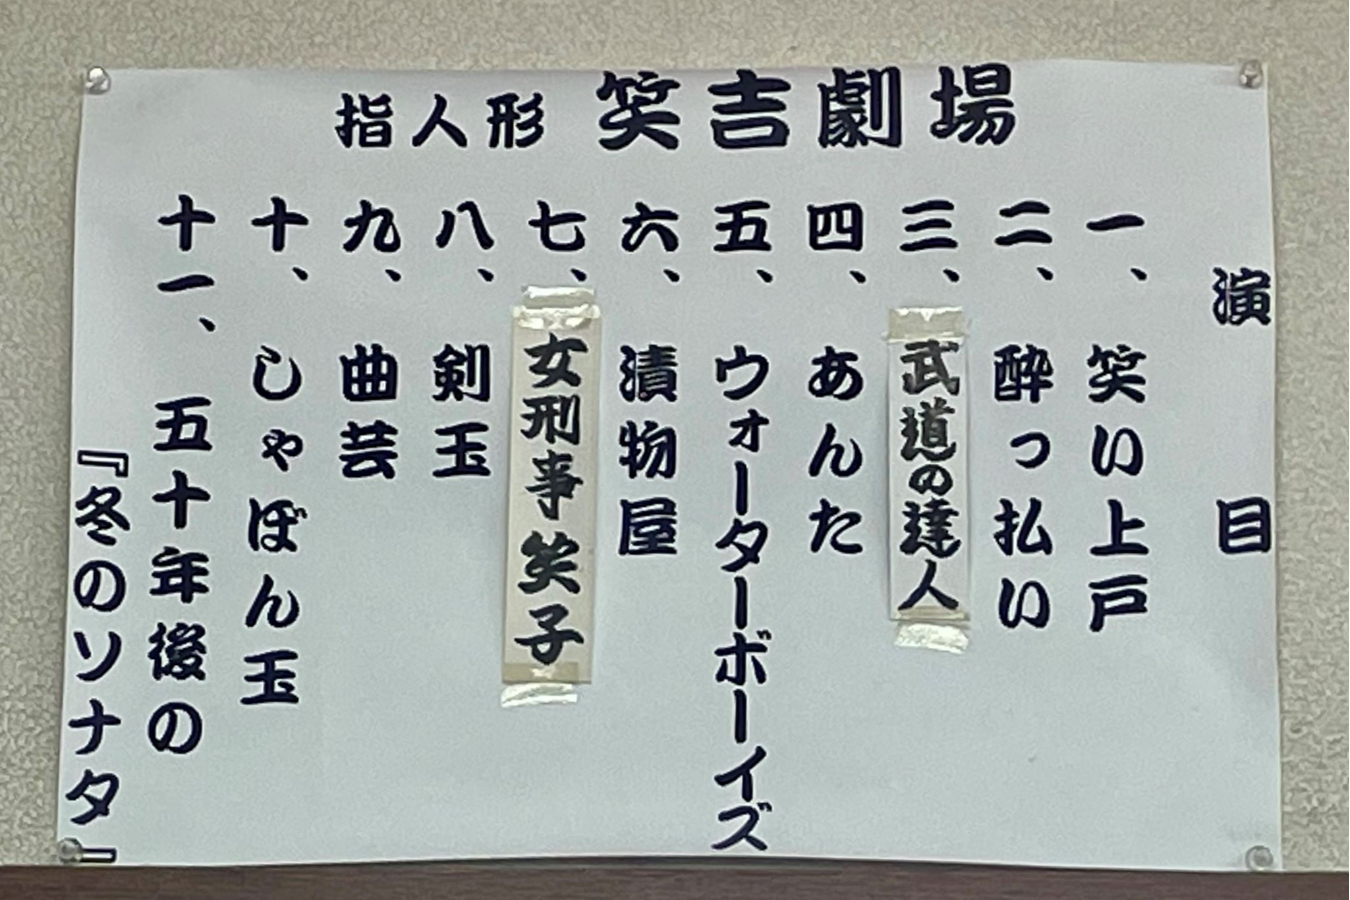 指人形 笑吉劇場
演目
一、笑い上戸
二、酔っ払い
三、武道の達人
四、あんた
五、ウォーターボーイズ
六、漬物屋
七、女刑事笑子
八、剣玉
九、曲芸
十、しゃぼん玉
十一、五十年後の
『冬のソナタ』